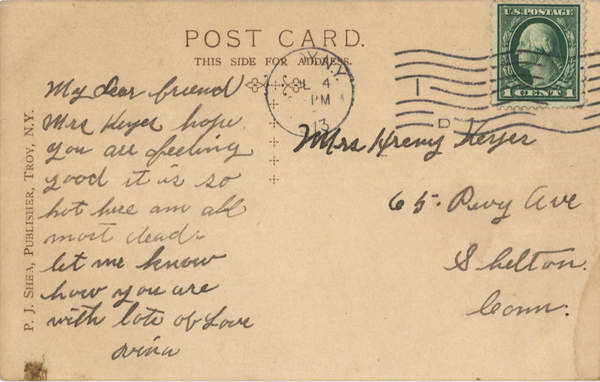 POST CARD.
THIS SIDE FOR ADDRESS.
U.S. POSTAGE
1 CENT 1
Y. N.Y.
L 4
PM
13
1
D
My dear friend
Mrs Keyer hope
you are feeling
good it is so
hot here am all
most dead
let me know
how you are
with lots of love
Mrs Keyer
65 Ave
Shelton.
Conn.
P. J. SHEA, PUBLISHER, TROY, N.Y.